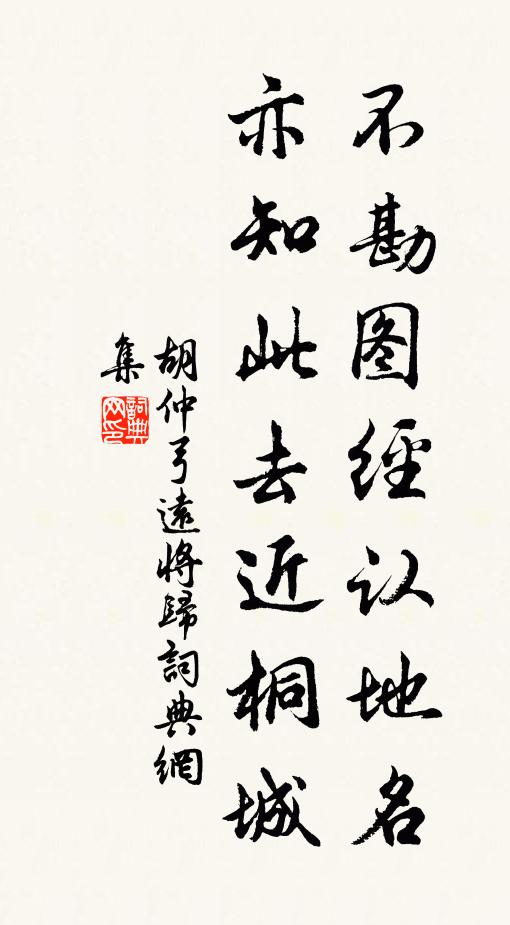 不勘图經认地名
亦知此去近桐城
胡仲弓遠將歸詞典網
集
詞典网印